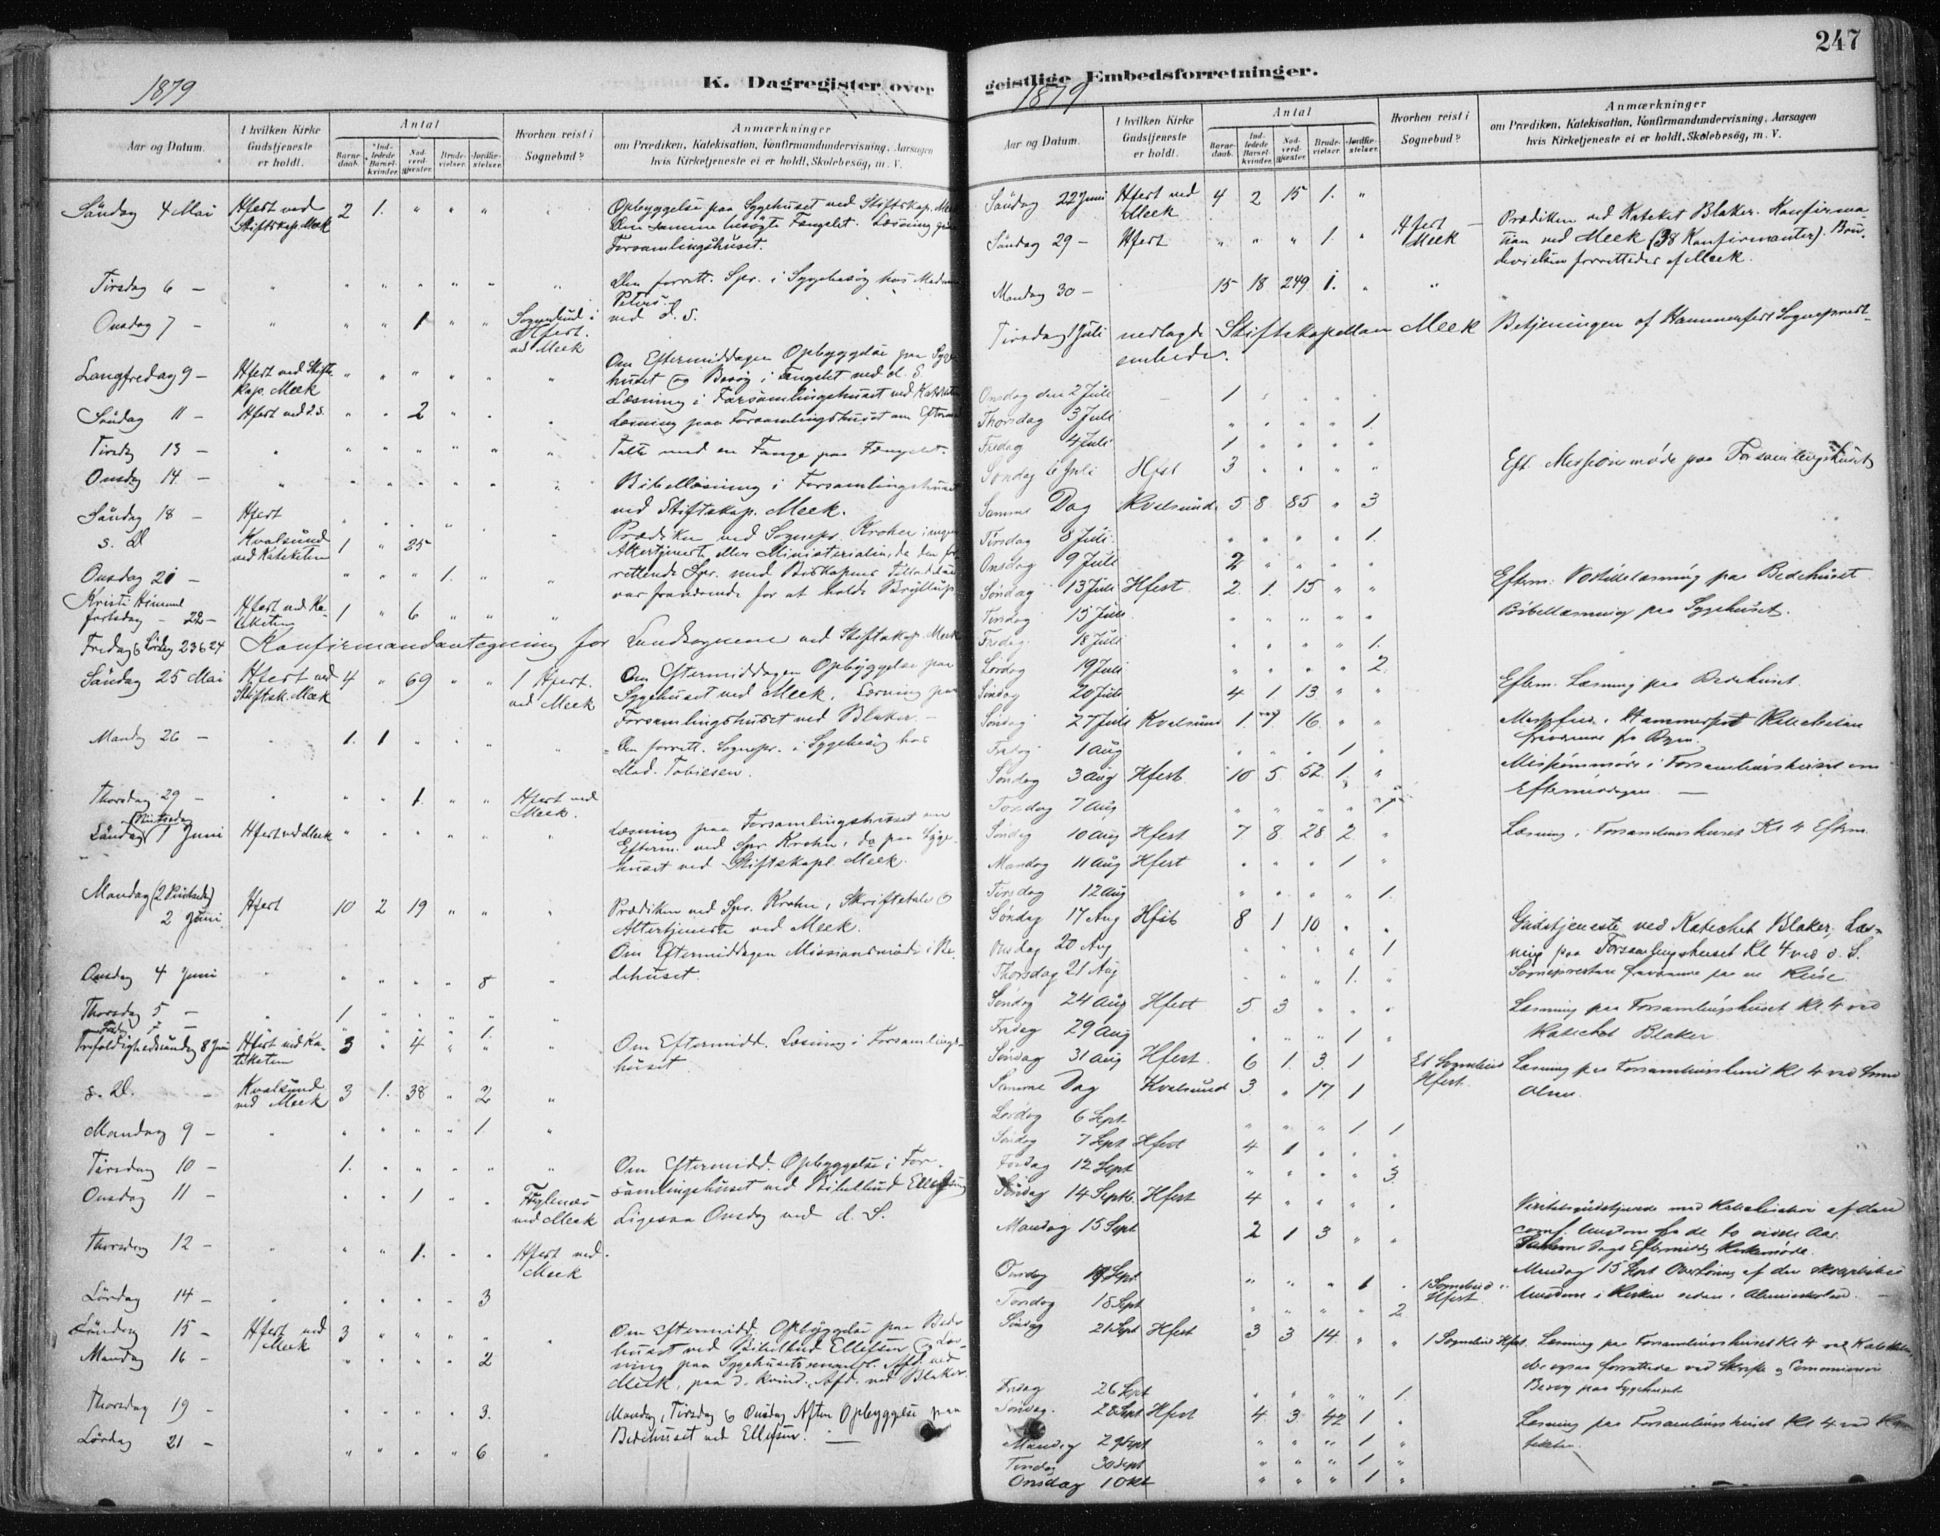 247
K. Dagregister over
geistlige Embedsforretninger.
1879
1879
Aar og Datum.
I hvilken Kirke Gudstjeneste er holdt.
Antal
Barne-daab.
Ind-ledede Barsel-kvinder.
Nad-verd-gjester.
Brude-vielser.
Jordfæ-stelser.
Hvorhen reist i Sognebud?
Anmærkninger
om Prædiken, Katekisation, Konfirmandundervisning, Aarsagen
hvis Kirketjeneste ei er holdt, Skolebesøg, m. V.
Søndag 4 Mai Hfest ved 2 1. " " " Opbyggelse paa Sygehuset ved Stiftskap. Meek
Stiftskap. Meek Den samme besøgte Fængslet. Læsning paa
Forsamlingshuset.
Tirsdag 6 – Den forrett. Spr. i Sygebesøg hos Madam
Onsdag 7 – 1 Sognebud i ved d. S.
Hfest.
ved Meek
Langfredag 9 – Hfest ved Stifts- Om Eftermiddagen Opbyggelse paa Syge-
kap. Meek huset og Besøg i Fængslet ved d. S.
Læsning i Forsamlingshuset ved Kateketen
Søndag 11 – Hfest ved d. S. 2 Læsning paa Forsamlingshuset om Efterm.
Tirsdag 13 – Talte med en Fange paa Fængslet.
Onsdag 14 – Bibellæsning i Forsamlingshuset
ved Stiftskap. Meek.
Søndag 18 – Hfest Prædiken ved Sognepr. Krohn, ingen
s. D. Kvalsund 1 " 25 Altertjeneste eller Ministerialier, da den for-
ved Kateketen
Onsdag 21 – 1. rettende Spr. med Biskopens Tilladelse
var fraværende for at holde Bryllup.
Kristi Himmel-
fartsdag – 22 – Hfest ved Ka- 1 " 6
teketen
Fredag & Lørdag 23 & 24 Konfirmandantegning for Landsognene ved Stiftskap. Meek
Søndag 25 Mai Hfest ved 4 " 69 1 Hfest. Om Eftermiddagen Opbyggelse paa
Stiftsk. Meek ved Meek Sygehuset ved Meek. Læsning paa
Forsamlingshuset ved Blaker. –
Mandag 26 – 1. 1 Den forrett. Sognepr. i Sygebesøg hos
Mad. Tobiesen.
Thorsdag 29 – 1. Hfest ved
Meek.
Søndag 1 Juni Hfest ved Meek Læsning paa Forsamlingshuset om
Efterm. ved Spr. Krohn, do paa Syge-
huset ved Stiftskapl. Meek.
Mandag (2 Pintsedag)
2 Juni Hfest 10 2 19 Prædiken ved Spr. Krohn, Skriftetale &
Altertjeneste ved Meek.
Om Eftermiddagen Missionsmøde i Be-
dehuset.
Onsdag 4 Juni 8
Thorsdag 5 – 1.
Fredag 7 – 1.
Trefoldighedssøndag 8 Juni Hfest ved Ka- 3 " 4 Om Eftermidd. Læsning i Forsamlings-
teketen huset.
s. D. – Kvalsund 3 1. 38 " 2
ved Meek
Mandag 9 – 1.
Tirsdag 10 – 1. Om Eftermidd. Opbyggelse i For-
samlingshuset ved Bibelbud Ellefsen
Onsdag 11 – 1 Fuglenæs Ligesaa Onsdag ved d. S.
ved Meek
Thorsdag 12 – 1. Hfest ved
Meek
Lørdag 14 – 3
Søndag 15 – Hfest ved 3 Om Eftermidd. Opbyggelse paa Bede-
Meek huset ved Bibelbud Ellefsen & Læs-
Mandag 16 – 2 ning paa Sygehusets mandl. Afd. ved
Meek, paa d. kvind. Afd. ved Blaker.
Thorsdag 19 – 3. Mandag, Tirsdag & Onsdag Aften Opbyggelse paa
Bedehuset ved Ellefsen. —
Lørdag 21 – 6
Aar og Datum.
I hvilken Kirke Gudstjeneste er holdt.
Antal
Barne-daab.
Ind-ledede Barsel-kvinder.
Nad-verd-gjester.
Brude-vielser.
Jordfæ-stelser.
Hvorhen reist i Sognebud?
Anmærkninger
om Prædiken, Katekisation, Konfirmandundervisning, Aarsagen
hvis Kirketjeneste ei er holdt, Skolebesøg, m. V.
Søndag 22 Juni Hfest ved 4 2 15 1. "
Meek
Søndag 29 – Hfest " " " 1. " Hfest Prædiken ved Kateket Blaker. Konfirma-
Meek tion ved Meek (38 Konfirmanter). Bru-
devielsen forrettedes af Meek.
Mandag 30 – 15 18 249 1.
Tirsdag 1 Juli nedlagde Stiftskapellan Meek Betjeningen af Hammerfest Sogneprest-
embede.
Onsdag den 2 Juli 1
Thorsdag 3 Juli 1.
Fredag 4 Juli 1
Søndag 6 Juli Hfst 3 Eft. Missionsmøde paa Forsamlingshuset
Samme Dag Kvalsund 5 8 85 " 3
Tirsdag 8 Juli 1.
Onsdag 9 Juli 2
Søndag 13 Juli Hfest. 2. 1. 15 Efterm. Postillelæsning paa Bedehuset
Tirsdag 15 Juli Bibellæsning paa Sygehuset.
Fredag 18 Juli 1.
Lørdag 19 Juli 2.
Søndag 20 Juli 4 1 13 Efterm. Læsning paa Bedehuset.
Søndag 27 Juli Kvalsund 1 7 16 Hammerfest Kateketen
fraværende fra Byen.
Fredag 1 Aug 1
Søndag 3 Aug Hfest 10 5 52 1. Missionsmøde i Forsamlingshuset om
Eftermiddagen. —
Torsdag 7 Aug
Søndag 10 Aug Hfest 7 8 28 2 Læsning i Forsamlingshuset Kl 4 Efterm.
Mandag 11 Aug Hfest 1
Tirsdag 12 Aug 1.
Søndag 17 Aug Hfst 8 1 10 Gudstjeneste ved Katechet Blaker, Læs-
Onsdag 20 Aug 1 ning paa Forsamlingshuset Kl 4 ved d. S.
Thorsdag 21 Aug 1. Sognepresten fraværende paa en Reise.
Søndag 24 Aug Hfest 5 3 Læsning paa Forsamlingshuset Kl. 4 ved
Katechet Blaker
Fredag 29 Aug 1
Søndag 31 Aug Hfest. 6 1. 3. 1 Et Sognebud Læsning paa Forsamlingshuset Kl 4 ved
Hfest. Olsen.
Samme Dag Kvalsund 3. " 17 1
Lørdag 6 Sept. 1 1
Søndag 7 Sept Hfest 4 1
Fredag 12 Sept 3.
Søndag 14 Septb. Hfest 4
Mandag 15 Sept 2 1 3 conf. Ungdom fra de to sidste Aar.
Samme Dags Eftermiddag Kirkemøde.
Mandag 15 Sept
Onsdag Sept 1 1 Sognebud i Ungdom i Kirken
Hfest.
Torsdag 18 Sept 2
Søndag 21 Sept Hfest 3 3 14. 1 Sognebud Hfest. Læsning paa Forsamlingshuset Kl 4 ved Kateketen,
Besøg paa Sygehuset
Fredag 26 Sept 1.
Søndag. 28 Sept Hfest 4. 3. 42 1 Læsning paa Forsamlingshuset Kl. 4 ved Ka-
teketen.
Mandag 29 Sept 1
Tirsdag 30 Sept 1
Onsdag 1 Okt 1